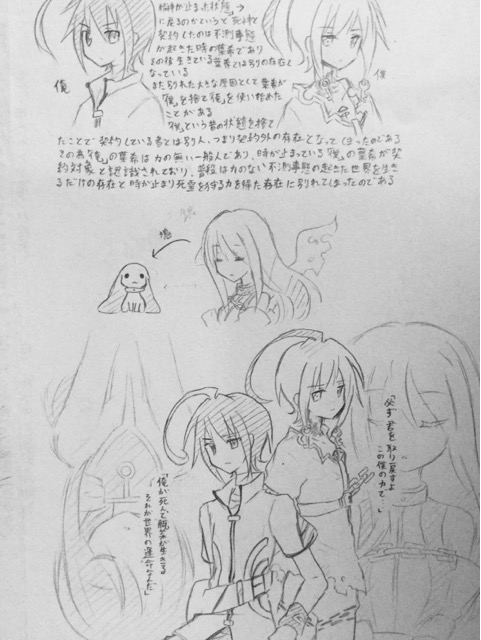 時が止まった状態」→
に戻るのかというと死神と
契約したのは不測事態
が起きた時の葉希であり
その後生きている葉希とは別の存在と
なっている
また別れた大きな原因として葉希が
「僕」を捨て「俺」を使い始めた
ことがある
「僕」という昔の状態を捨て
たことで契約している者とは別人、つまり契約外の存在となってしまったのである
その為「俺」の葉希は力の無い一般人であり、時が止まっている「僕」の葉希が契
約対象と認識されており、普段は力のない不測事態の起きた世界を生き
るだけの存在と時が止まり死霊を狩る力を得た存在に別れてしまったのである
俺
僕
魂
魂
「必ず君を取り戻すよ
この僕の力で。」
「俺が死んで が生きる
それが世界の運命なんだ」